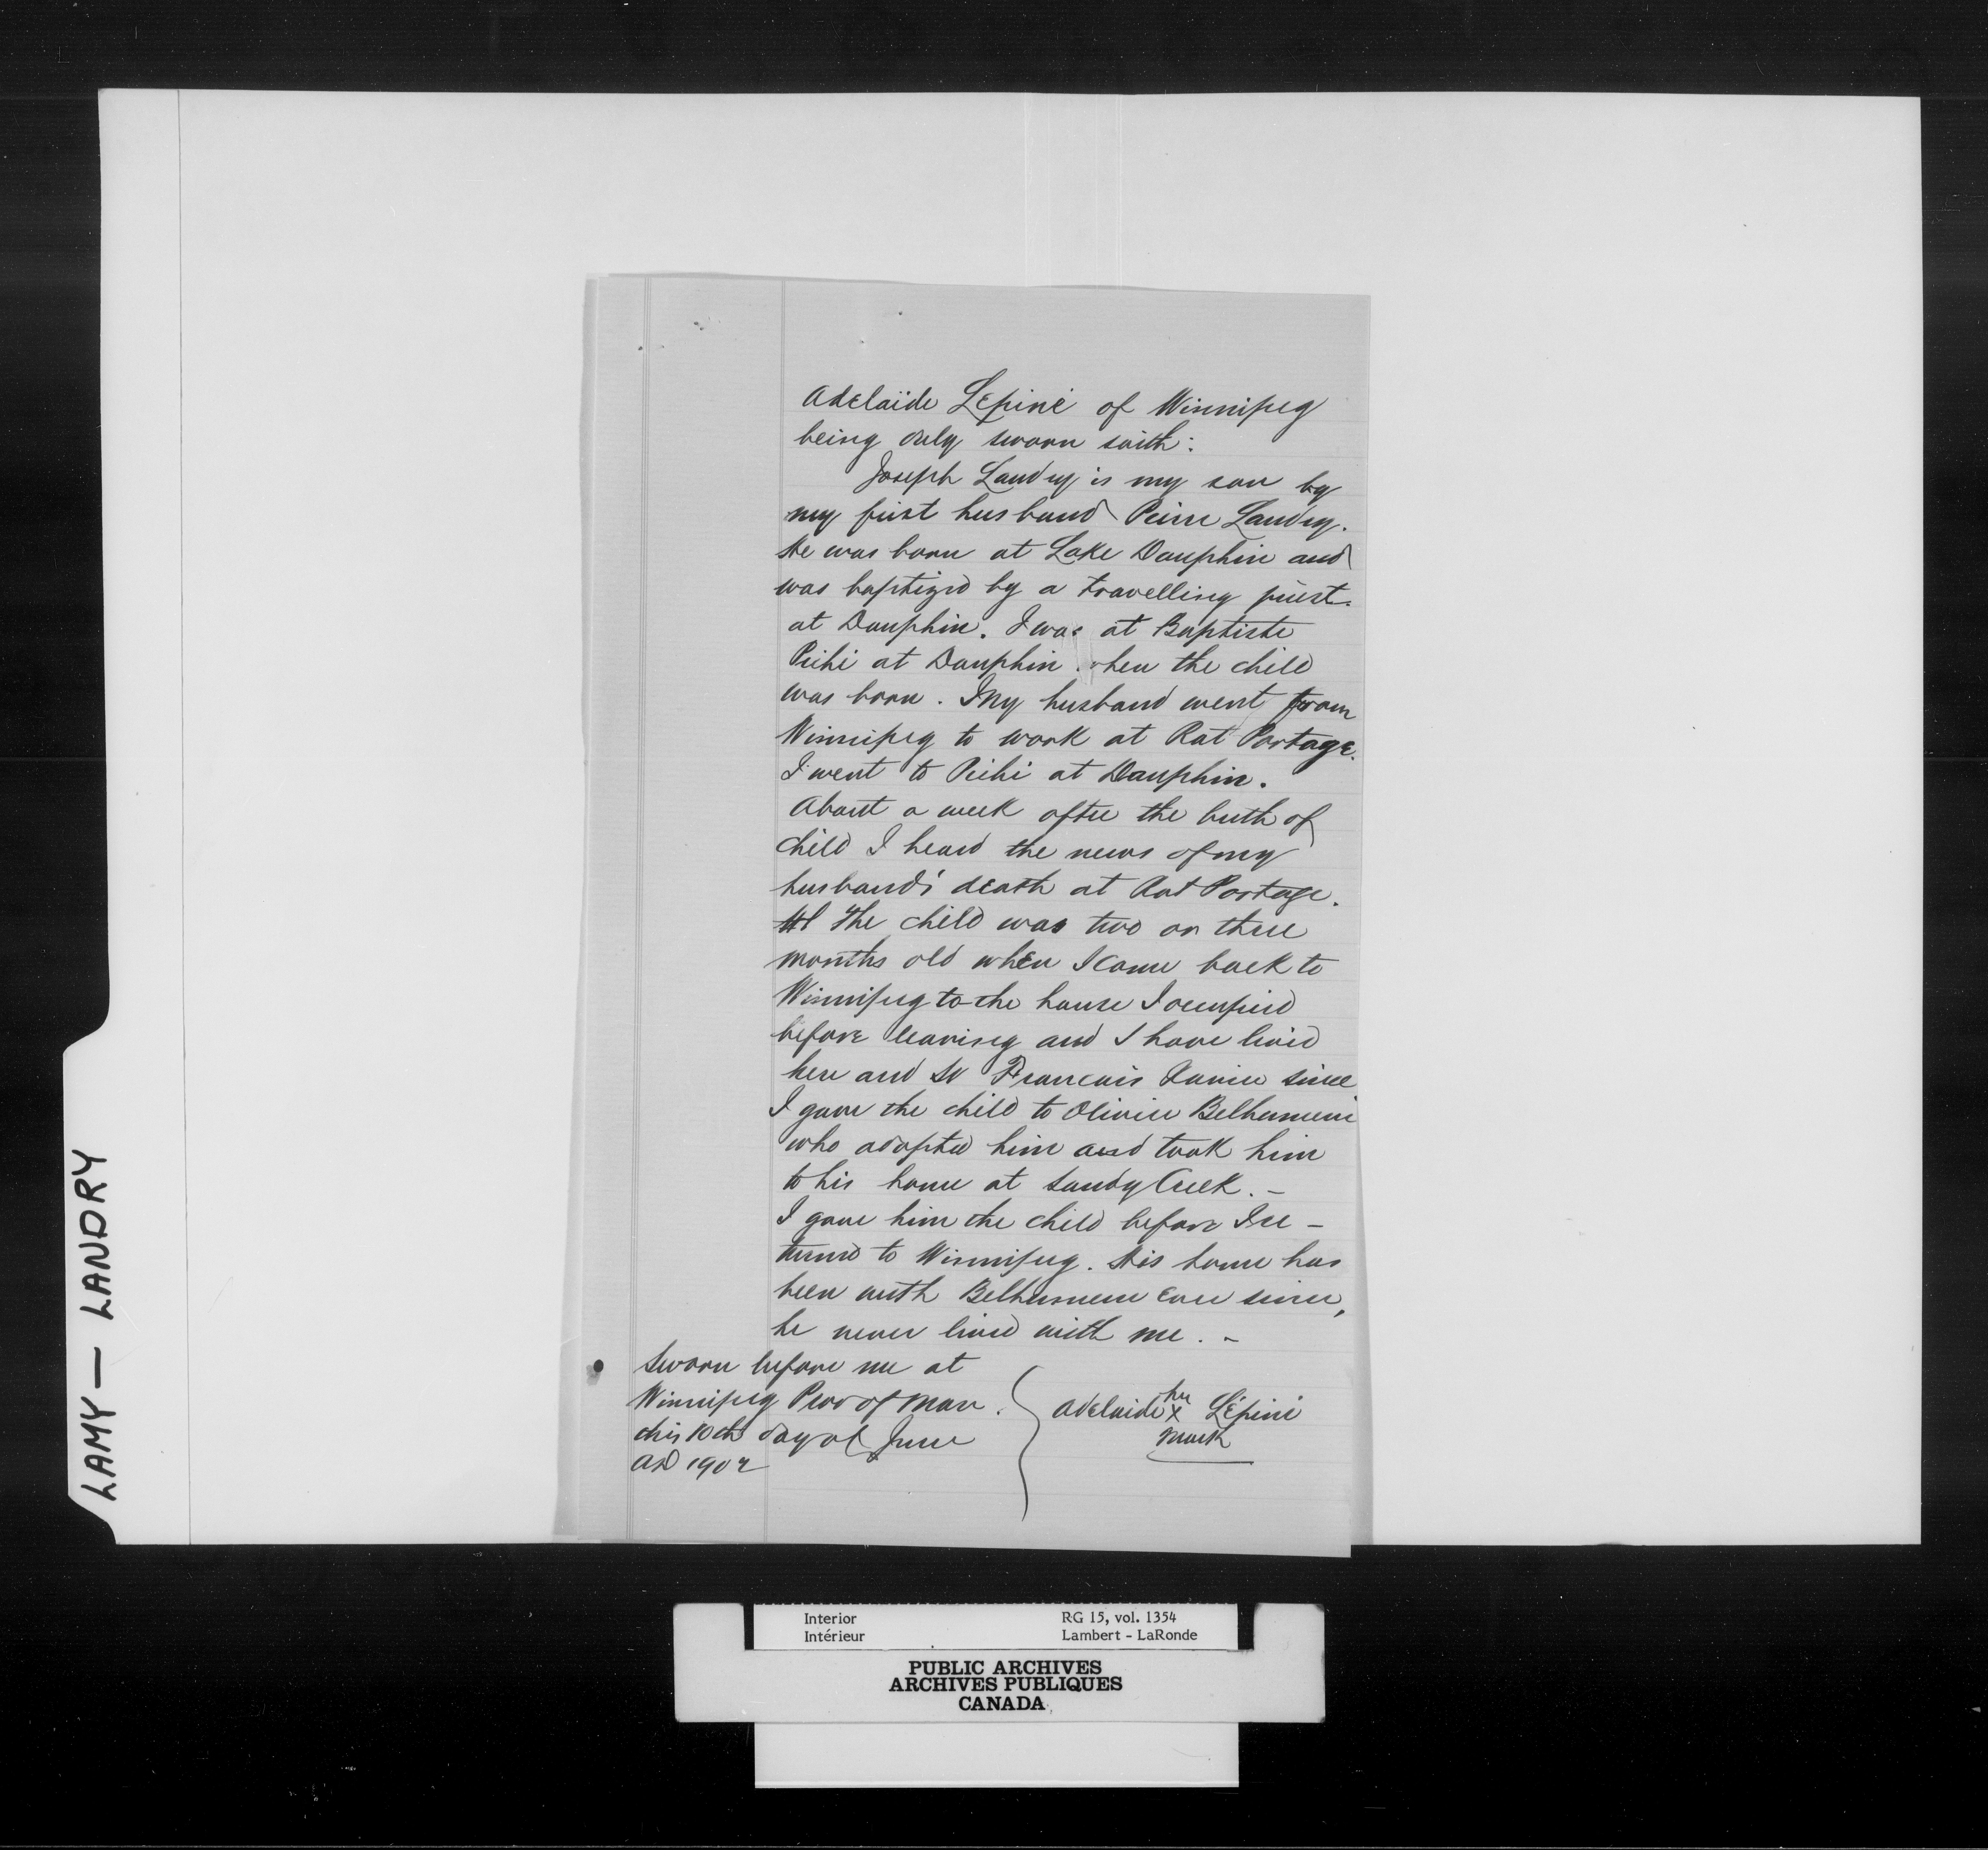 LAMY — LANDRY
Adelaïde Lépine of Winnipeg
being duly sworn saith:
Joseph Landry is my son by
my first husband Pierre Landry.
He was born at Lake Dauphin and
was baptized by a travelling priest
at Dauphin. I was at Baptiste
Pichi at Dauphin when the child
was born. My husband went from
Winnipeg to work at Rat Portage.
I went to Pichi at Dauphin.
About a week after the birth of
child I heard the news of my
husband's death at Rat Portage.
The child was two or three
months old when I came back to
Winnipeg to the house I occupied
before leaving and I have lived
here and St Francois Xavier since
I gave the child to Olivier Belhumeur
who adopted him and took him
to his home at Sandy Creek. –
I gave him the child before I re –
turned to Winnipeg. His home has
been with Belhumeur ever since,
he never lived with me. –
Sworn before me at
Winnipeg Prov of Man.
this 10th day of June
AD 1902
her
Adelaide x Lépine
mark
Interior RG 15, vol. 1354
Intérieur Lambert - LaRonde
PUBLIC ARCHIVES
ARCHIVES PUBLIQUES
CANADA